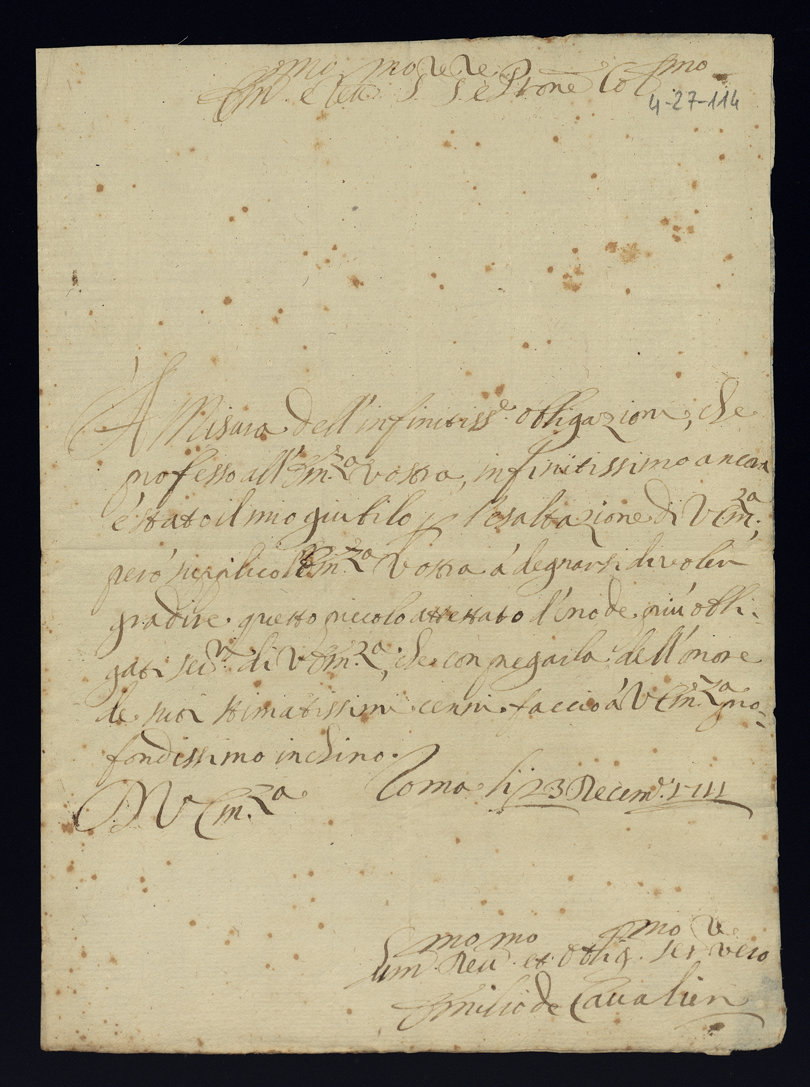 Em.mo e Reu.mo S.re S.re e Prone Col.mo
4-27-114
A Misura dell'infinitiss.e obligazioni, che
professo all'Em.za Vostra, infinitissimo ancora
é stato il mio giubilo p l'esaltazione di V Em.za;
peró supplico l'Em.za Vostra á degnarsi di voler
gradire questo piccolo attestato d'uno de più obli-
gati ser.ri di V Em.za, che con pregarla dell'onore
de suoi stimatissimi cenni faccio á V Em.za pro-
fondissimo inchino.
D V Em.za Roma li 23 Decem.e 1711
Um.mo Deu.mo et Oblig.mo Ser.re Vero
Emilio de Cavalieri